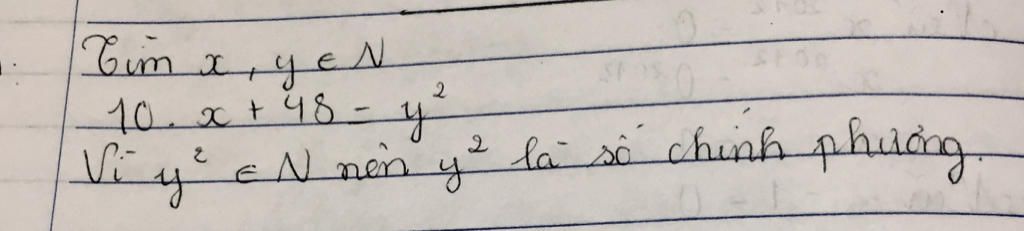 Tìm x, y ∈ N
10. x + 48 = y²
Vì y² ∈ N nên y² là số chính phương.